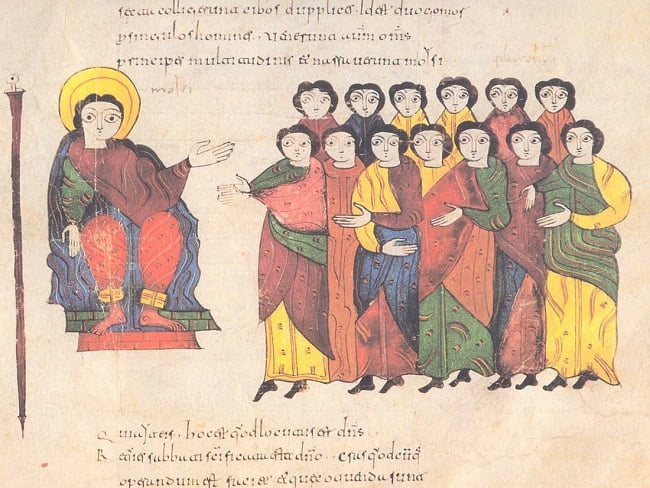 colligerunt cibos dupplices. Id est duo gomor
p singulos homines. uenerunt autm oms
principes multitudinis et narrauerunt moisi
moisi
Qui ait eis. hoc est quod locutus est dns.
Requies sabbati scificata est dno. cras quodcuq
operandum est facite et que coquenda sunt